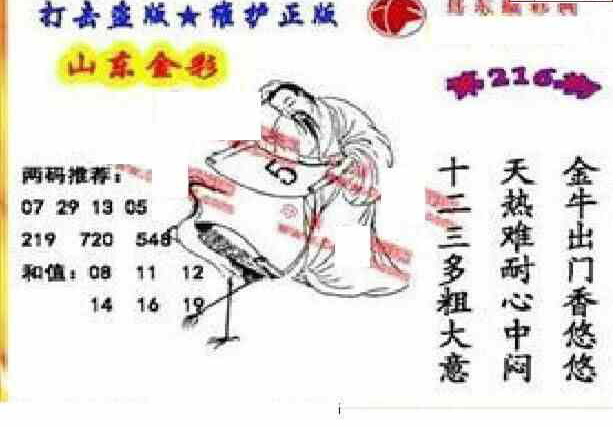 打击盗版★维护正版
山东金彩
216
两码推荐:
07 29 13 05
219 720 548
和值: 08 11 12
14 16 19
5
金牛出门香悠悠
天热难耐心中闷
十二三多粗大意